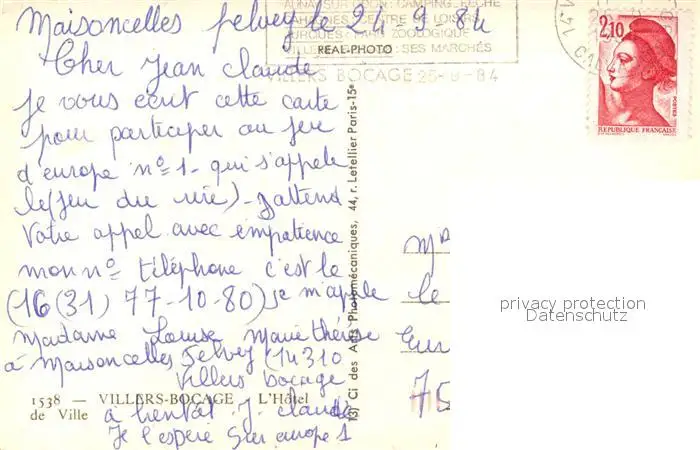 Maisoncelles pelvey le 24-9-84
Cher Jean claude
je vous ecrit cette carte
pour participer au jeu
d'europe n°1- qui s'appele
le (jeu du rire) - Jattend
Votre appel avec empatience
mon n° téléphone c'est le
(16(31) 77-10-80) je m'apele
Madame Louise Marie thérèse
à Maisoncelles Pelvey (14310
Villers bocage
à bientot J. claude
Je l'espère Sur europe 1
1538 — VILLERS-BOCAGE L'Hôtel
de Ville
Cl des Arts Photomécaniques, 44, r. Letellier Paris-15e
CAMPING PECHE
CENTRE DE LOISIRS
PARC ZOOLOGIQUE
SES MARCHÉS
REAL-PHOTO
VILLERS BOCAGE 25-9-84
14
2,10
POSTES
REPUBLIQUE FRANÇAISE
le
75
privacy protection
Datenschutz